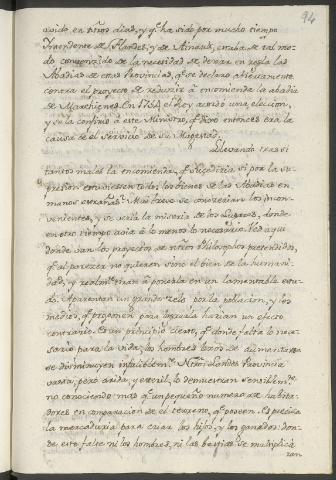 94
avido, en ntros dias, y qe. ha sido por mucho tiempo
Intendente de Flandes, y de Ainaut, estaba de tal mo-
do convencido de la necesidad de dexar en regla las
Abadias de estas Provincias, qe. se declaró altivamente
contra el proyecto de reducir à encomienda la abadia
de Marchienes. En 1754 el Rey acordó una eleccion,
y se la confirió à este Ministro, qe. hizo entonces era la
causa de el servicio de Su Magestad.
Llevando tras si
tantos males la encomienda, qe. sucederia si por la su-
presion estuviesen todos los bienes de las Abadias en
manos estrañas? Mui breve se conocerian los incon-
venientes, y se veria la miseria de los Lugares, donde
en otro tiempo avia à lo menos lo necesario. Ved aqui
donde van los proyectos de ntros Philosophos pretendidos,
qe. al parecer no quieren sino el bien de la humani-
dad, y realmte. van à ponerla en un lamentable esta-
do. Aparentan un grande zelo por la poblacion, y los
medios, qe. proponen para lograrla harian un efecto
contrario. Es un principio cierto, qe. donde falta lo nece-
sario para la vida, los hombres lexos de aumentarse
se disminuyen infaliblemte. Ntras Landes Provincia
vasta, pero arida, y esteril, lo demuestran sensiblemte.
no conociendo mas qe. un pequeño numero de habita-
dores en comparacion de el terreno, qe. poseen. Es precisa
la mercaduria para criar los hijos, y los ganados: don-
de esto falte ni los hombres, ni las bestias se multiplica
ran